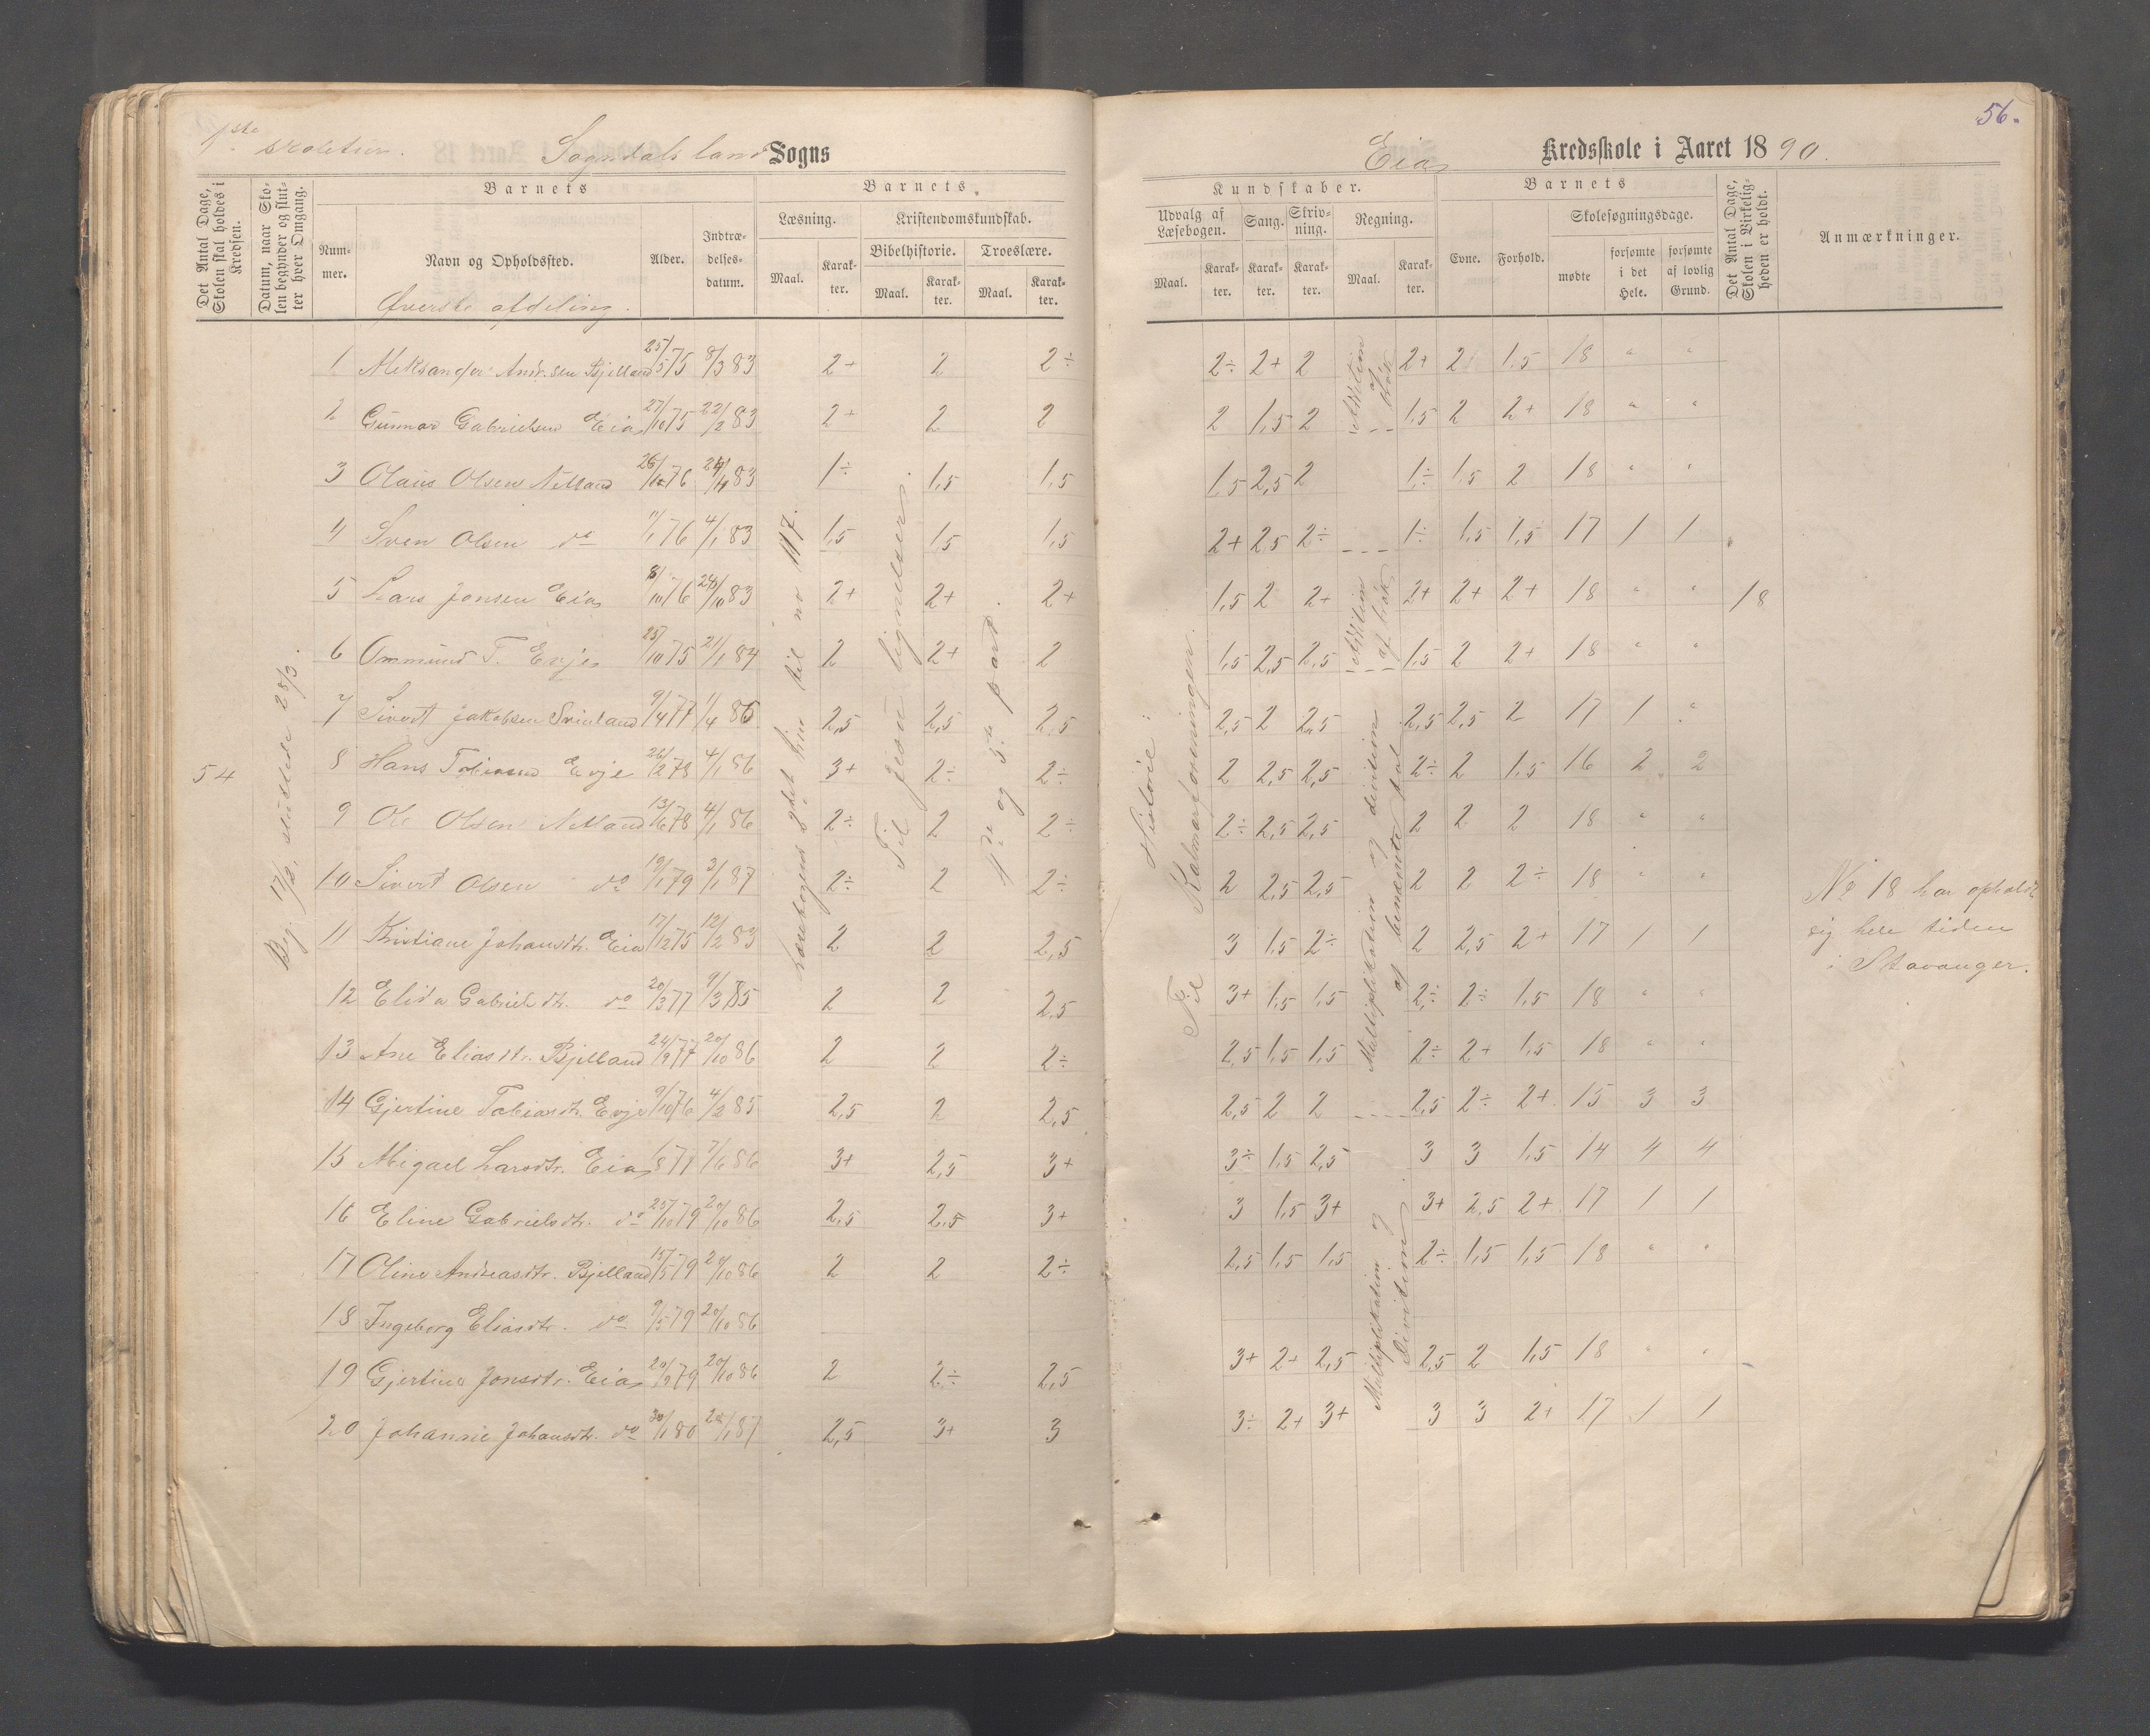 56.
1ste skoletur. Sogndals land Sogns Eia Kredsskole i Aaret 1890.
Det Antal Dage, Skolen skal holdes i Kredsen.
Datum, naar Skolen begynder og slutter hver Omgang.
Barnets
Nummer.
Navn og Opholdssted.
Øverste afdeling.
Alder.
Indtrædelsesdatum.
Barnets
Læsning.
Maal.
Karakter.
Kristendomskundskab.
Bibelhistorie.
Maal.
Karakter.
Troeslære.
Maal.
Karakter.
Kundskaber.
Udvalg af Læsebogen.
Maal.
Karakter.
Sang.
Karakter.
Skrivning.
Karakter.
Regning.
Maal.
Karakter.
Barnets
Evne.
Forhold.
Skolesøgningsdage.
mødte
forsømte i det Hele.
forsømte af lovlig Grund.
Det Antal Dage, Skolen i Virkeligheden er holdt.
Anmærkninger.
54
Beg. 17/2, sluttede 28/3.
Læsebogens 3die til no 117.
Til Jesu lignelser.
1ste og 3die part.
Historie:
Til Kalmarforeningen.
1 Aleksander Andr.sen Bjelland 25/5 75 8/3 83 2+ 2 2÷ 2÷ 2+ 2 2+ 2 1,5 18 " "
2 Gunnar Gabrielsen Eia 27/10 75 22/2 83 2+ 2 2 2 1,5 2 1,5 2 2+ 18 " "
3 Olaus Olsen Netland 1÷ 1,5 1,5 1,5 2,5 2 1÷ 1,5 2 18 " "
4 Sven Olsen do 11/1 76 4/1 83 1,5 1,5 1,5 2+ 2,5 2÷ 1÷ 1,5 1,5 17 1 1
5 Lars Jonsen Eia 8/10 76 24/10 83 2+ 2+ 2+ 1,5 2 2+ 2+ 2+ 2+ 18 " " 18
6 Ommund T. Evje 25/10 75 21/1 84 2 2+ 2 1,5 2,5 2,5 1,5 2 2+ 18 " "
7 Sivert Jakobsen 9/4 77 1/4 86 2,5 2,5 2,5 2,5 2 2,5 2,5 2,5 2 17 1 "
8 Hans Tobiassen Evje 26/2 78 4/1 86 3+ 2÷ 2÷ 2 2,5 2,5 2÷ 2 1,5 16 2 2
9 Ole Olsen Netland 13/6 78 4/1 86 2÷ 2 2÷ 2÷ 2,5 2,5 2 2 2 18 " "
10 Sivert Olsen do 19/1 79 3/1 87 2÷ 2 2÷ 2 2,5 2,5 2 2 2÷ 18 " "
11 Kristiane Johansdtr. Eia 17/12 75 12/2 83 2 2 2,5 3 1,5 2÷ 2 2,5 2+ 17 1 1
12 Elisa Gabrielsdtr. do 20/3 77 9/3 85 2 2 2,5 3+ 1,5 1,5 2÷ 2÷ 1,5 18 " "
13 Ane Eliasdtr. Bjelland 24/9 77 20/10 86 2 2 2÷ 2,5 1,5 1,5 2÷ 2+ 1,5 18 " "
14 Gjertine Tobiasdtr. Evje 9/10 76 4/2 85 2,5 2 2,5 2,5 2 2 2,5 2÷ 2+ 15 3 3
15 Migael Larsdtr. Eia 1/8 77 7/6 86 3+ 2,5 3+ 3÷ 1,5 2,5 3 3 1,5 14 4 4
16 Eline Gabrielsdtr. do 25/10 79 20/10 86 2,5 2,5 3+ 3 1,5 3+ 3+ 2,5 2+ 17 1 1
17 Oline Andreasdtr. Bjelland 15/5 79 20/10 86 2 2 2÷ 2,5 1,5 1,5 2÷ 1,5 1,5 18 " "
18 Ingeborg Eliasdtr. do 9/5 79 20/10 86
19 Gjertine Jonsdtr. Eia 20/9 79 20/10 86 2 2÷ 2,5 3+ 2+ 2,5 2,5 2 1,5 18 " "
20 Johanne Johansdtr. do 30/1 80 2,5 3+ 3 3÷ 2+ 3+ 3 3 2+ 17 1 1
Addition af brök
Addition af brök
Multiplikation og division af benævnte tal
Multiplikation og Division
No 18 har opholdt
sig hele tiden
i Stavanger.